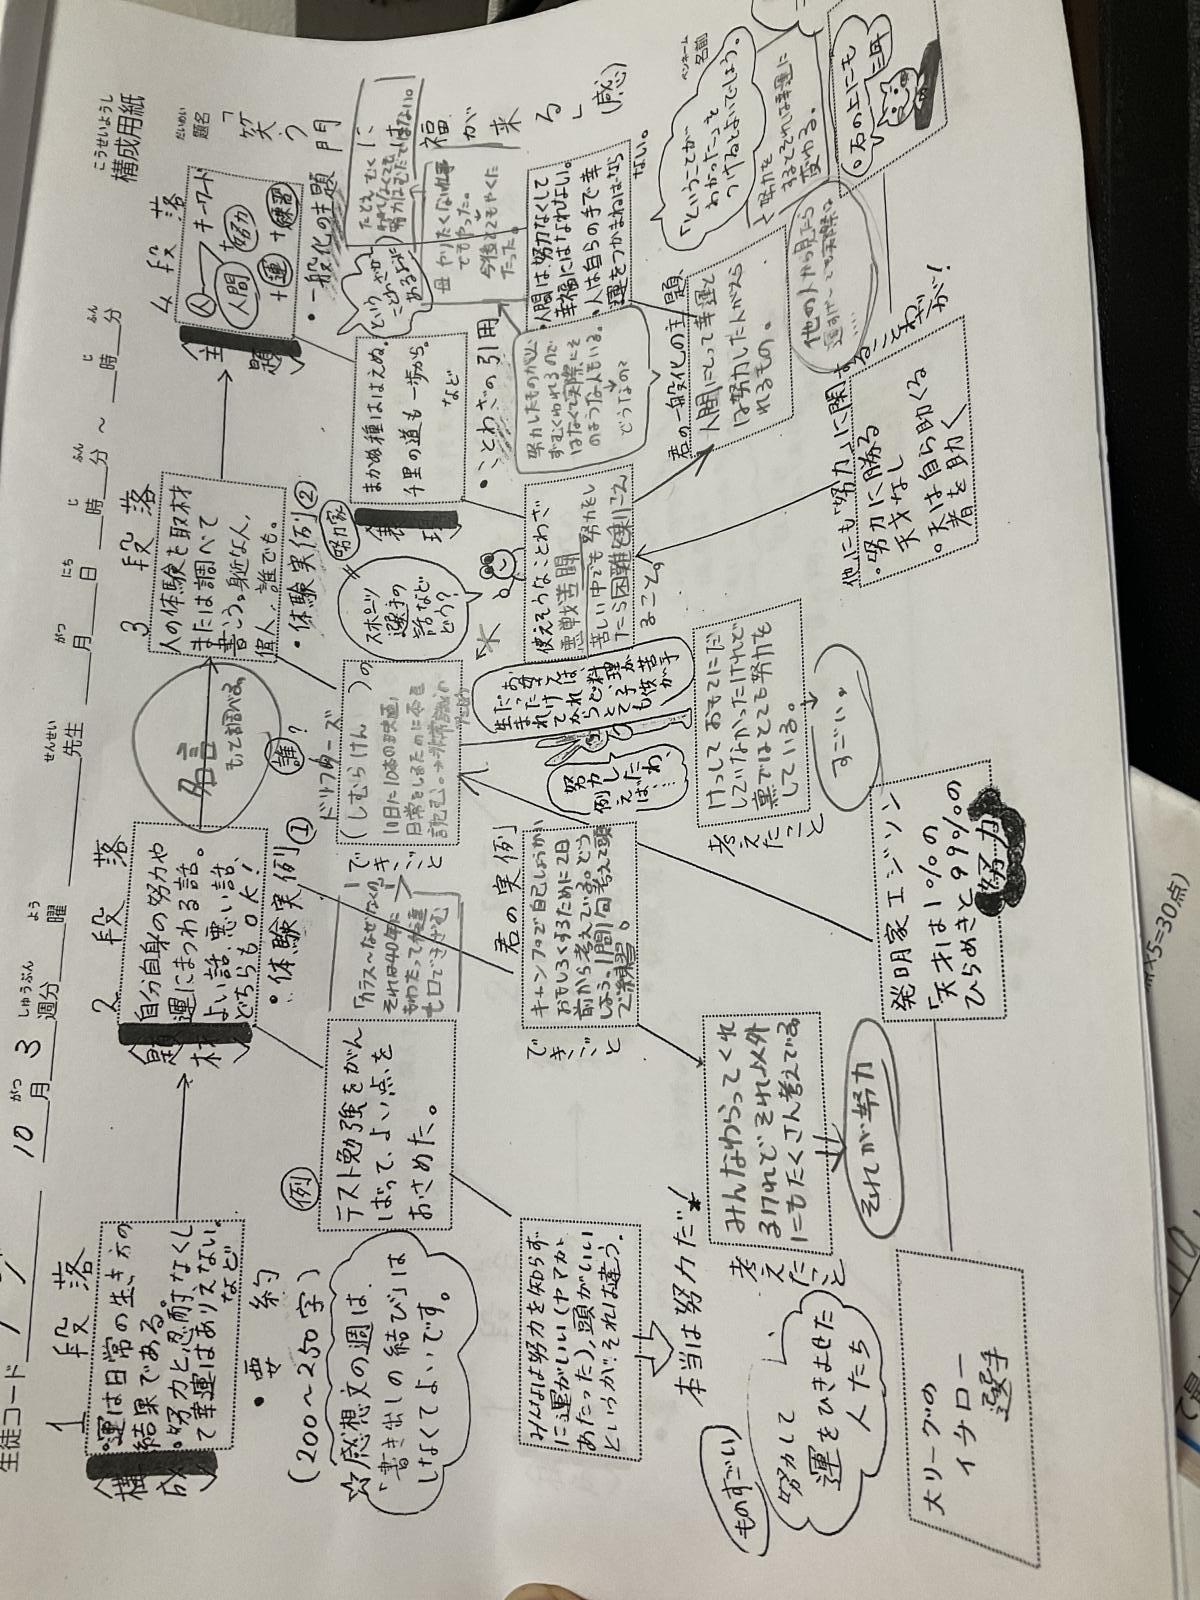 構成用紙
こうせいようし
題名
だいめい
「笑う門に福が来る」(感)
ペンネーム
名前
生徒コード
10月3週分
がつ
しゅうぶん
曜
よう
先生
せんせい
月
がつ
日
にち
時
じ
分
ふん
〜
時
じ
分
ふん
1段落
構成
・運は日常の生き方の
結果である。
・努力と忍耐なくし
て幸運はありえない。
など
・要約
(200〜250字)
☆感想文の週は、
「書き出しの結び」は
しなくてよいです。
2段落
題材
自分自身の努力や
運にまつわる話。
よい話、悪い話、
どちらもOK!
・体験実例①
例
テスト勉強をがん
ばって、よい点を
おさめた。
みんなは努力を知らず
に運がいい(ヤマが
あたった)、頭がいい
というが、それは違う。
本当は努力だ!
君の実例
できごと
キャンプで自己しょうかい
おもしろくするために2日
前から考えている。どう
しよう。1問1句考えて頭
で練習。
考えたこと
みんなわらってくれ
るけれどそれ以外
にもたくさん考えている
それが努力
ものすごい
努力して
運をひきよせた
人たち
大リーグの
イチロー
選手
発明家エジソン
「天才は1%の
ひらめきと99%の
努力」
名言
もって調べる。
3段落
人の体験を取材
または調べて
書こう。身近な人、
偉人、誰でも。
・体験実例②
誰?
ドリフターズ
(しむらけん)の
1日に10本の映画、
日常をしるために本を
読む。
できごと
「カラス〜なぜなくの」
それは40年に
もわたって
努力家
スポーツ
選手の
話など
どう?
お母さんは、
生まれつき料理が
だったけれど、
努力したといえば…
例えば、
考えたこと
けっしておもてにだ
していなかったけれど
裏ではとても努力を
している。
すごい。
4段落
主題
キーワード
人
人間
+努力
+運
+練習
・一般化の主題
たとえ、むくに
努力はむだではない。
ということが
母 やりたくない仕事
でもやった。
今後とてもやくに
たった。
・人間は、努力なくして
幸福にはなれない。
・人は自らの手で幸
運をつかまねばなら
ない。
「ということが
わかった」と
つけるとよいでしょう。
君の一般化の主題
人間にとって幸運と
は努力した人がえら
れるもの。
努力を
変わる。
他の人から見たら
石の上にも
三年
まかぬ種ははえぬ。
千里の道も一歩から。
など
・ことわざの引用
努力したものが必
ずむくわれるので
はなくて実際にそ
のような人もいる。
どうなの
使えそうなことわざ
悪戦苦闘
苦しい中でも努力をし
たら困難を乗りこえ
ること。
他にも「努力」に関することわざが!
・努力に勝る
天才なし
・天は自ら助くる
者を助く
点×5=30点)